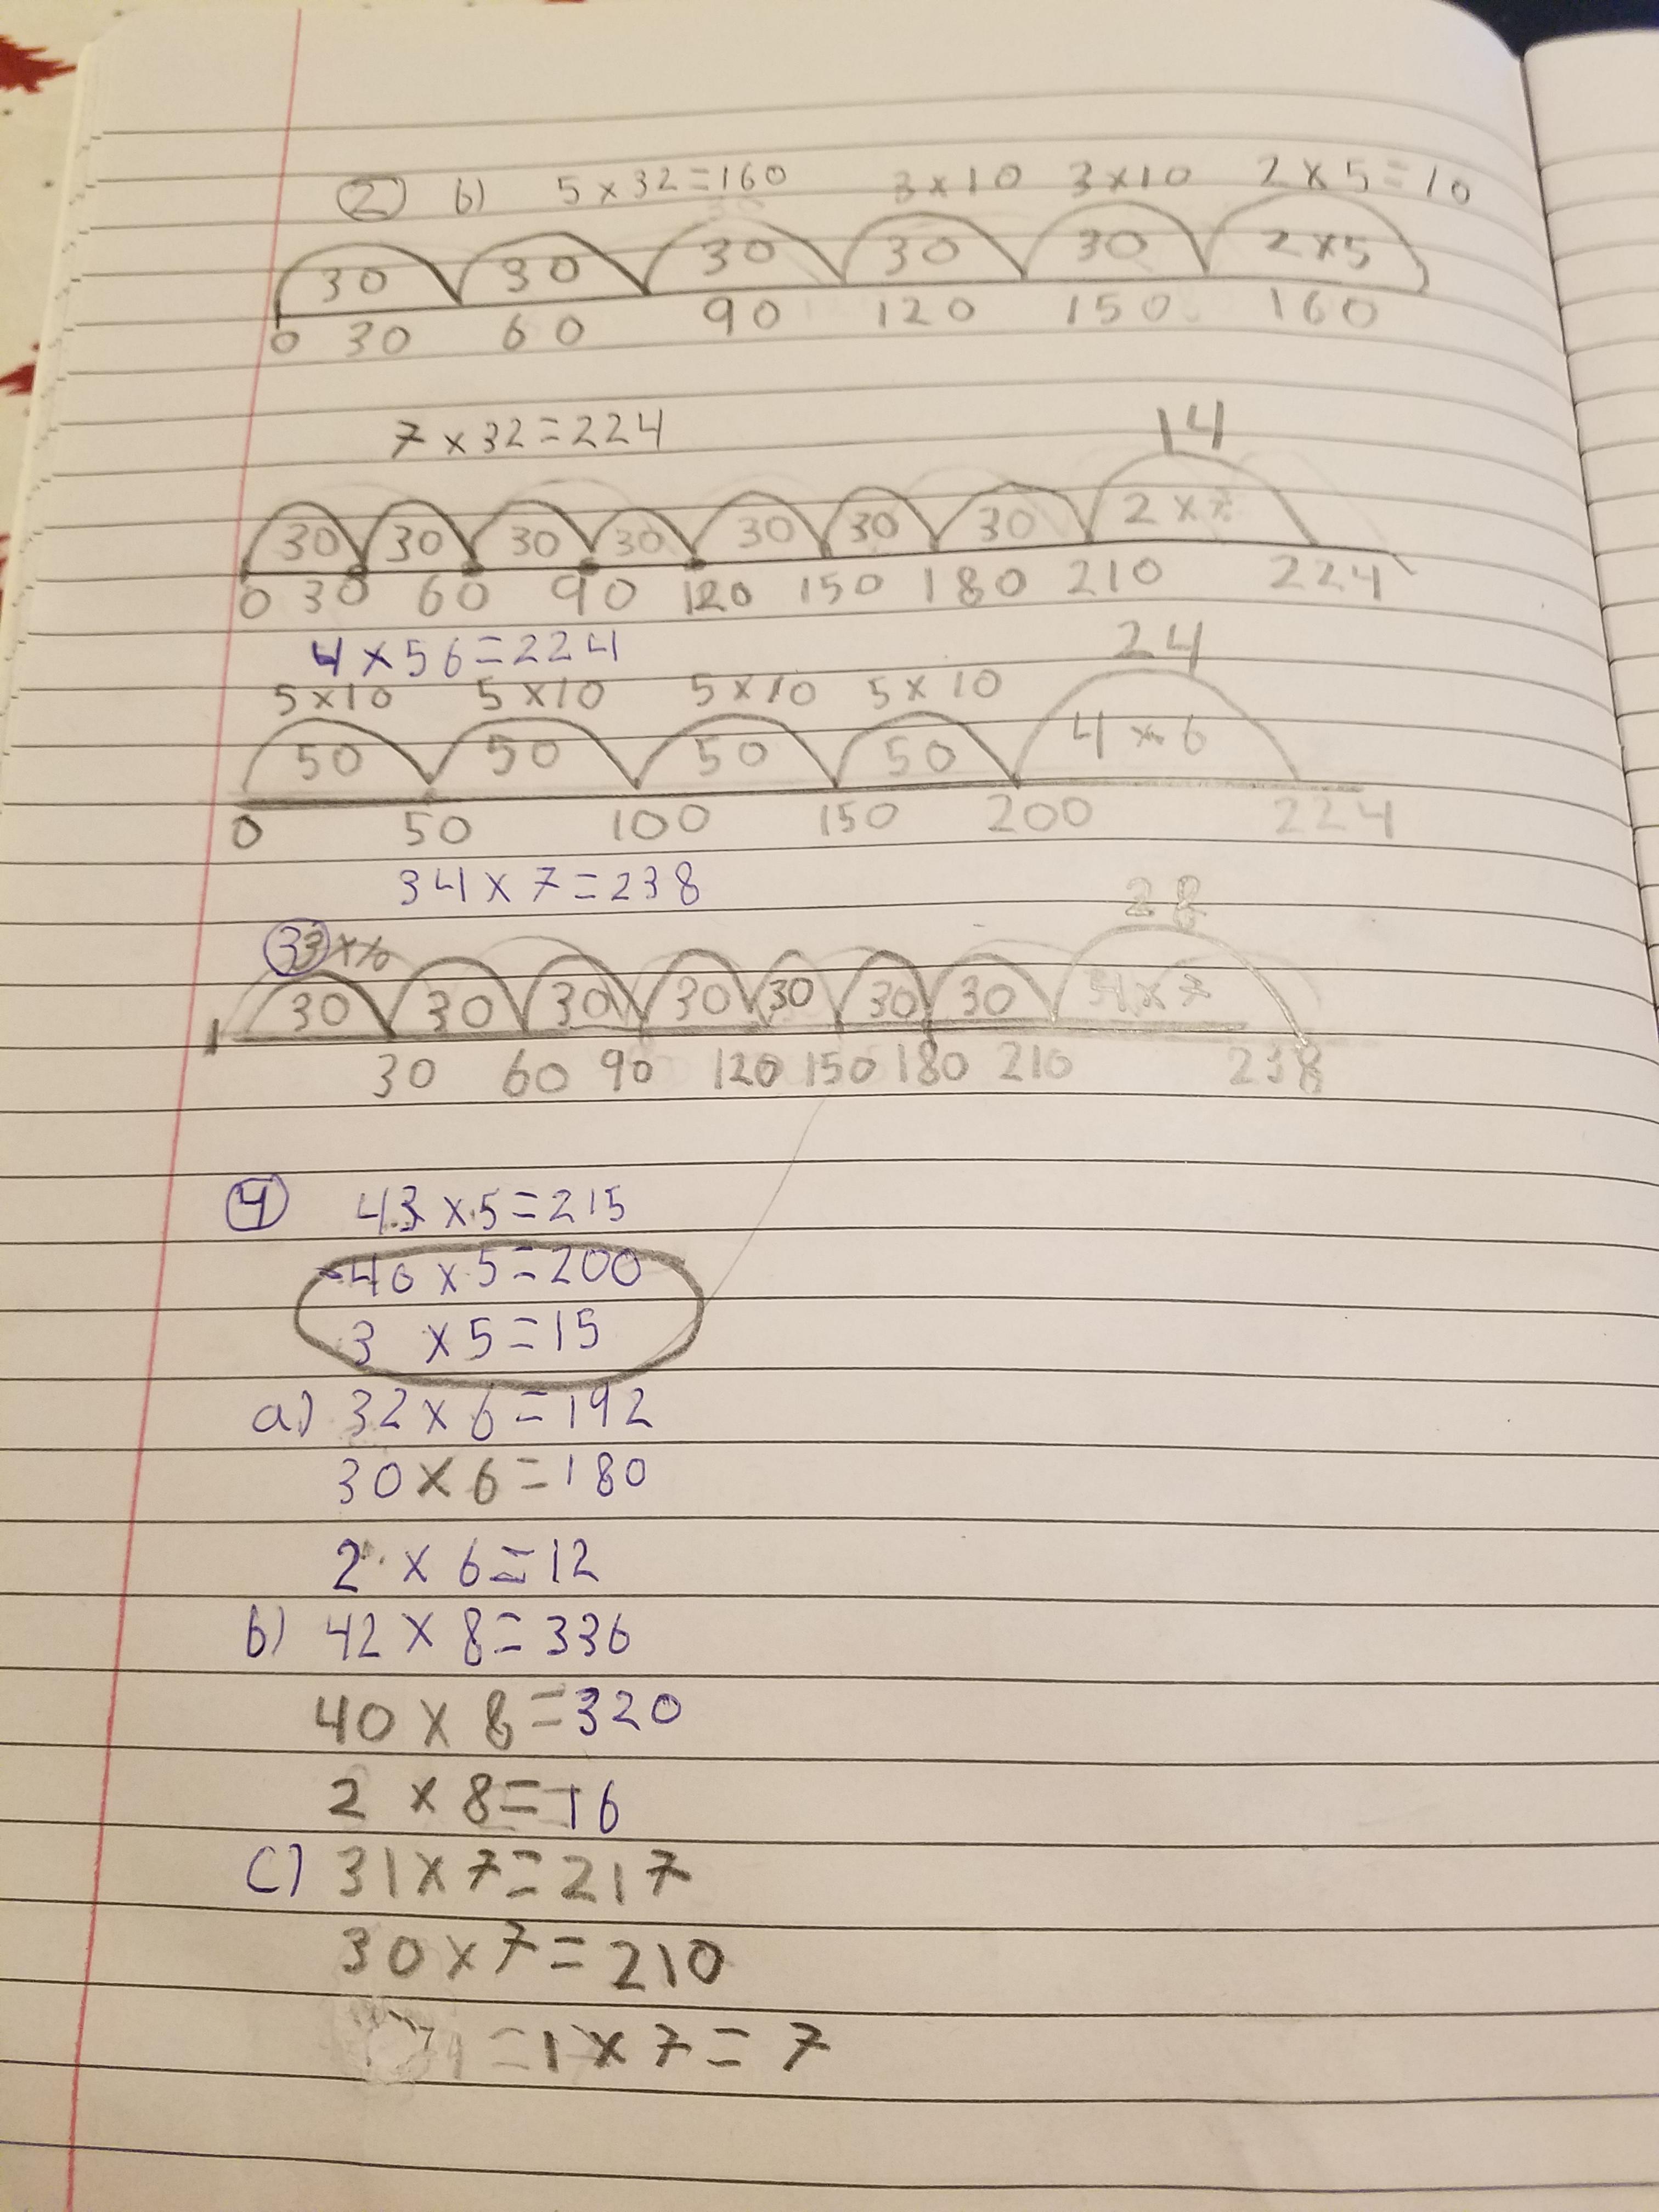 ② b) 5 x 32 = 160 3 x 10 3 x 10 2 x 5 = 10
30 30 30 30 30 2 x 5
0 30 60 90 120 150 160
7 x 32 = 224 14
30 30 30 30 30 30 30 2 x 7
0 30 60 90 120 150 180 210 224
4 x 56 = 224 24
5 x 10 5 x 10 5 x 10 5 x 10
50 50 50 50 4 x 6
0 50 100 150 200 224
34 x 7 = 238 28
③
30 30 30 30 30 30 30 4 x 7
30 60 90 120 150 180 210 238
④ 43 x 5 = 215
40 x 5 = 200
3 x 5 = 15
a) 32 x 6 = 192
30 x 6 = 180
2 x 6 = 12
b) 42 x 8 = 336
40 x 8 = 320
2 x 8 = 16
c) 31 x 7 = 217
30 x 7 = 210
= 1 x 7 = 7